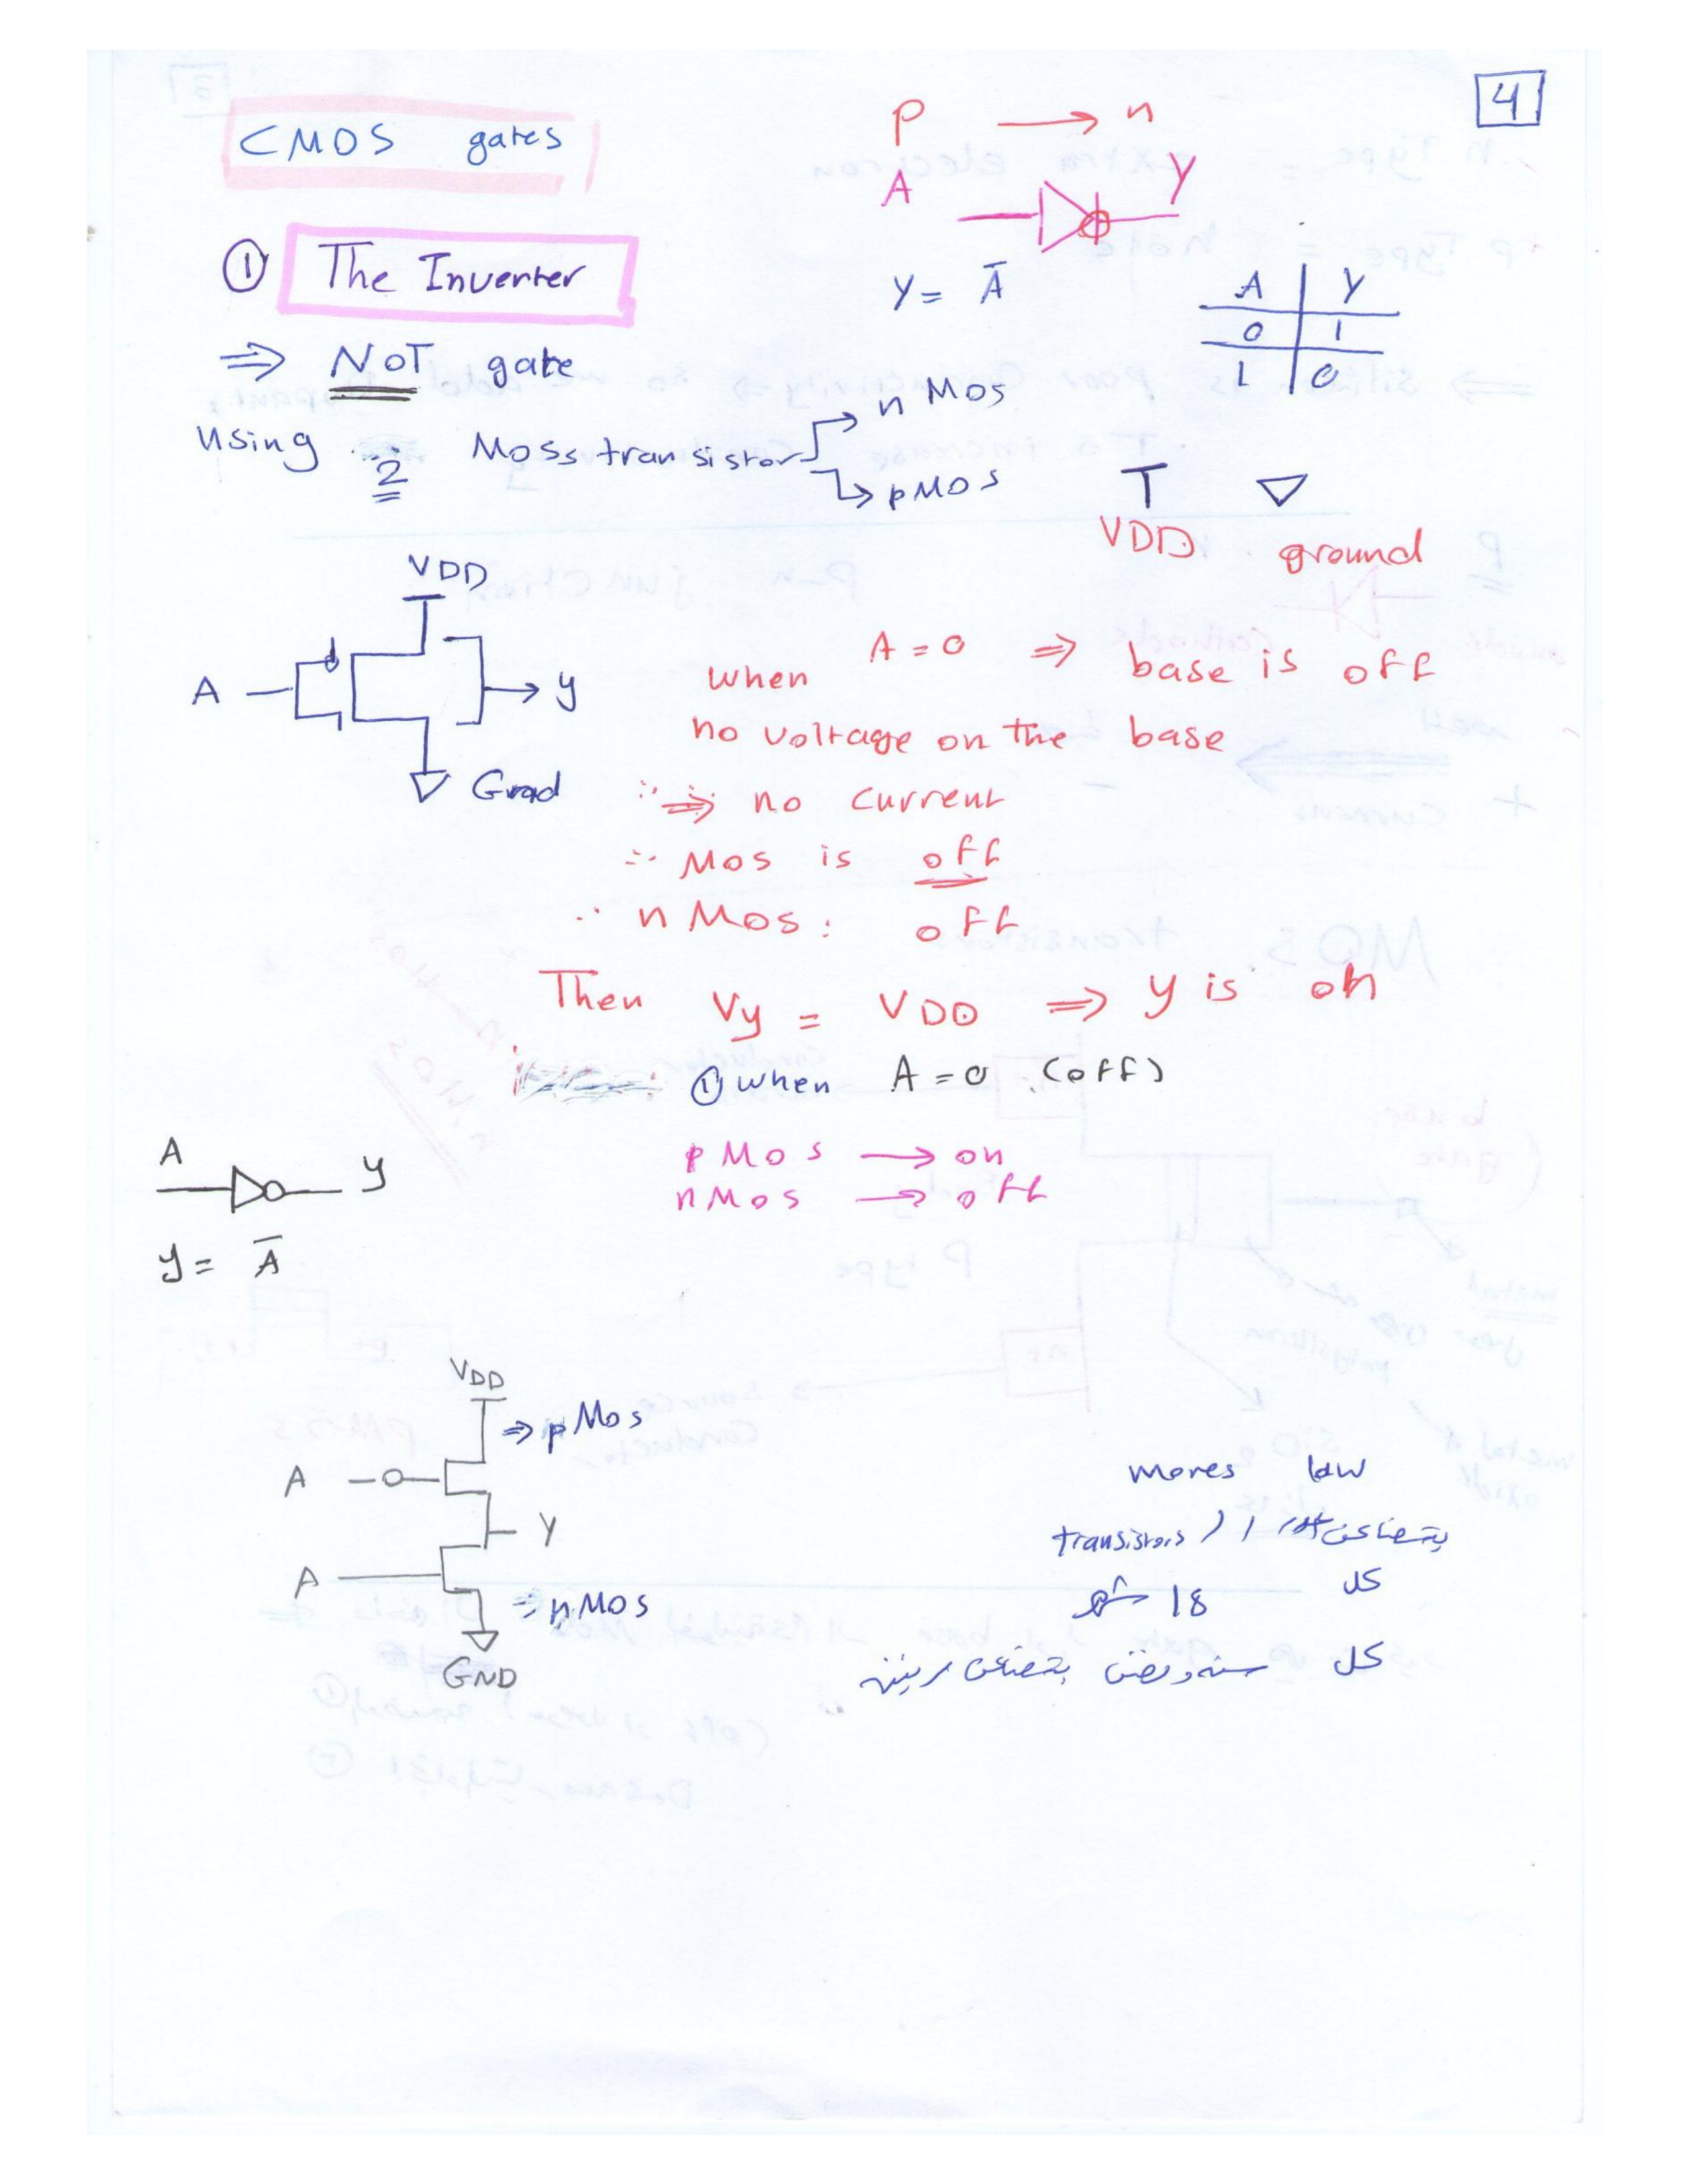 4
CMOS gates
P → n
A Y
① The Inverter
Y = Ā
A Y
0 1
1 0
⇒ NOT gate
using 2 Moss transistor
n Mos
pMos
VDD ground
VDD
A
y
Grnd
when A = 0 ⇒ base is off
no voltage on the base
∴ ⇒ no current
∴ Mos is off
∴ n Mos : off
Then Vy = VDD ⇒ y is on
① when A = 0 (off)
pMos → on
nMos → off
A y
y = Ā
VDD
⇒ pMos
A
Y
A
⇒ nMos
GND
mores law
transistors ال بتضاعف
كل
18 شهر
كل سنه ونص بتضاعف